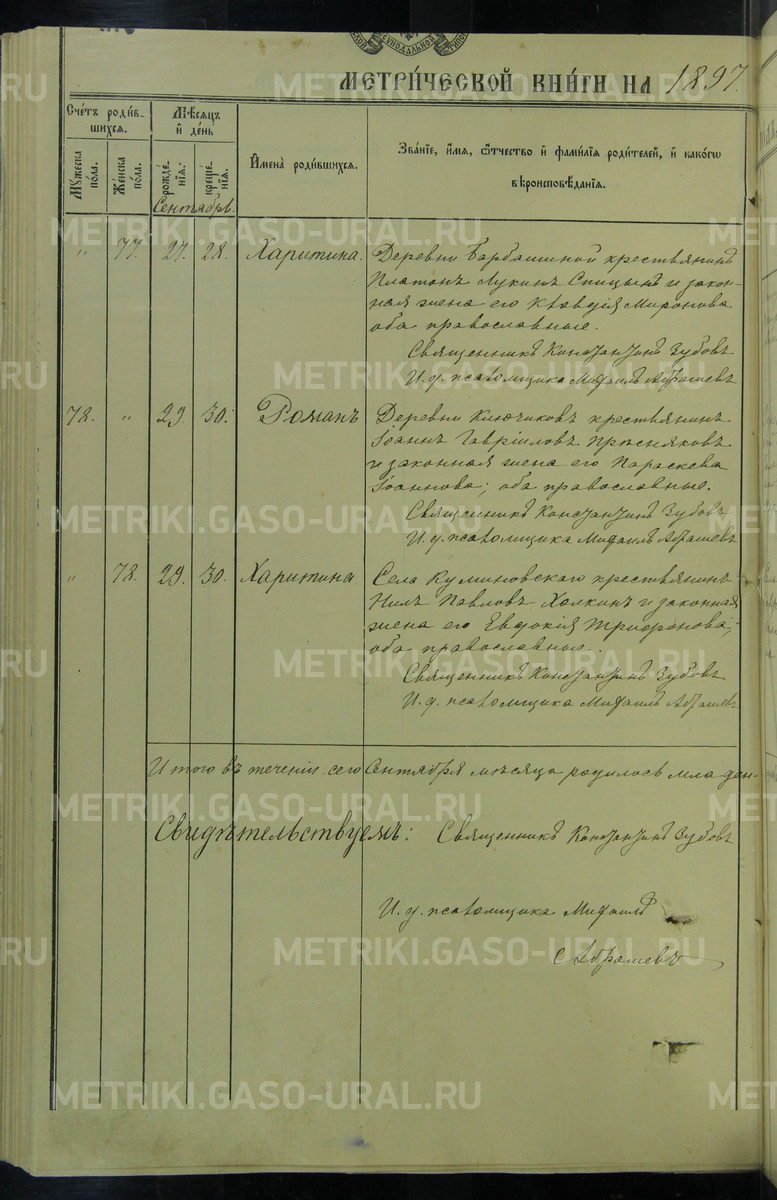 МЕТРИ́ЧЕСКОЙ КНИ́ГИ НА 1897.
Сче́тъ роди́в-
шихся.
Мѣсяцъ
и҆ де́нь
И҆мена̀ роди́вшихся.
Зва́нїе, и҆́мя, ѻ҆́тчество и҆ фами́лїя роди́телей, и҆ како́гѡ
вѣроисповѣ́данїя.
Му́жеска
по́ла.
Же́нска
по́ла.
рожде́-
нїя.
креще́-
нїя.
Сентябрь.
" 77. 27. 28. Харитина.
Деревни Барбашиной крестьянинъ
Платонъ Лукинъ Спицынъ и закон-
ная жена его Клавдія Миронова
оба православные.
Священникъ Константинъ Зубовъ
И. д. псаломщика Михаилъ Абрашевъ
78. " 29. 30. Романъ
Деревни Ключиковъ крестьянинъ
Іоаннъ Гавріиловъ Прѣсняковъ
и законная жена его Параскева
Іоаннова; оба православные.
Священникъ Константинъ Зубовъ
И. д. псаломщика Михаилъ Абрашевъ
" 78. 29. 30. Харитина
Села Куминовскаго крестьянинъ
Нилъ Павловъ Холкинъ и законная
жена его Евдокія Трифонова;
оба православные.
Священникъ Константинъ Зубовъ
И. д. псаломщика Михаилъ Абрашевъ
Итого въ теченіи сего Сентября мѣсяца родилось мла ден-
Свидѣтельствуемъ: Священникъ Константинъ Зубовъ
И. д. псаломщика Михаилъ
Абрашевъ
METRIKI.GASO-URAL.RU